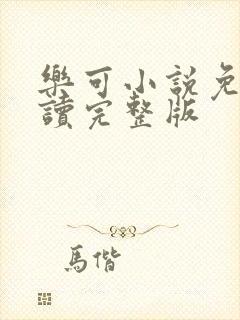 樂可小說免
讀完整版
馬偕